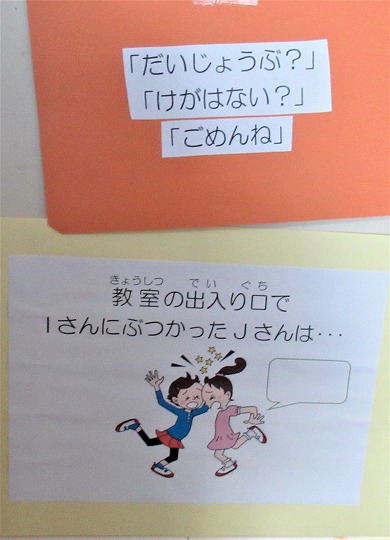 「だいじょうぶ？」
「けがはない？」
「ごめんね」
きょうしつ で い ぐち
教室の出入り口で
IさんにぶつかったJさんは･･･